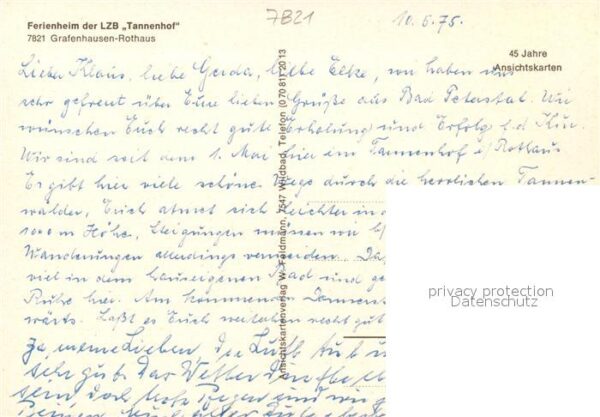 Ferienheim der LZB „Tannenhof"
7821 Grafenhausen-Rothaus
7821
10.6.75.
45 Jahre
Ansichtskarten
Liebe Klaus, liebe Gerda, liebe Elke, wir haben uns
sehr gefreut über Eure lieben Grüße aus Bad Peterstal. Wir
wünschen Euch recht gute Erholung und Erfolg b.d. Kur.
Wir sind seit dem 1. Mai hier im Tannenhof i/Rothaus
Es gibt hier viele schöne Wege durch die herrlichen Tannen-
wälder,
atmet sich leichter in
1000 m Höhe, Steigungen müssen wir
Wanderungen allerdings vermeiden.
viel in dem hauseigenen Bad und
Ruhe hier. Am kommenden Donnerst
wärts. Laßt es Euch weiterhin recht gut
meine Lieben, die Luft
sehr gut. Das Wetter
sein doch
Regen und
Ansichtskartenverlag W. Feldmann, 7547 Wildbad, Telefon (0 70 81) 20 13
privacy protection
Datenschutz